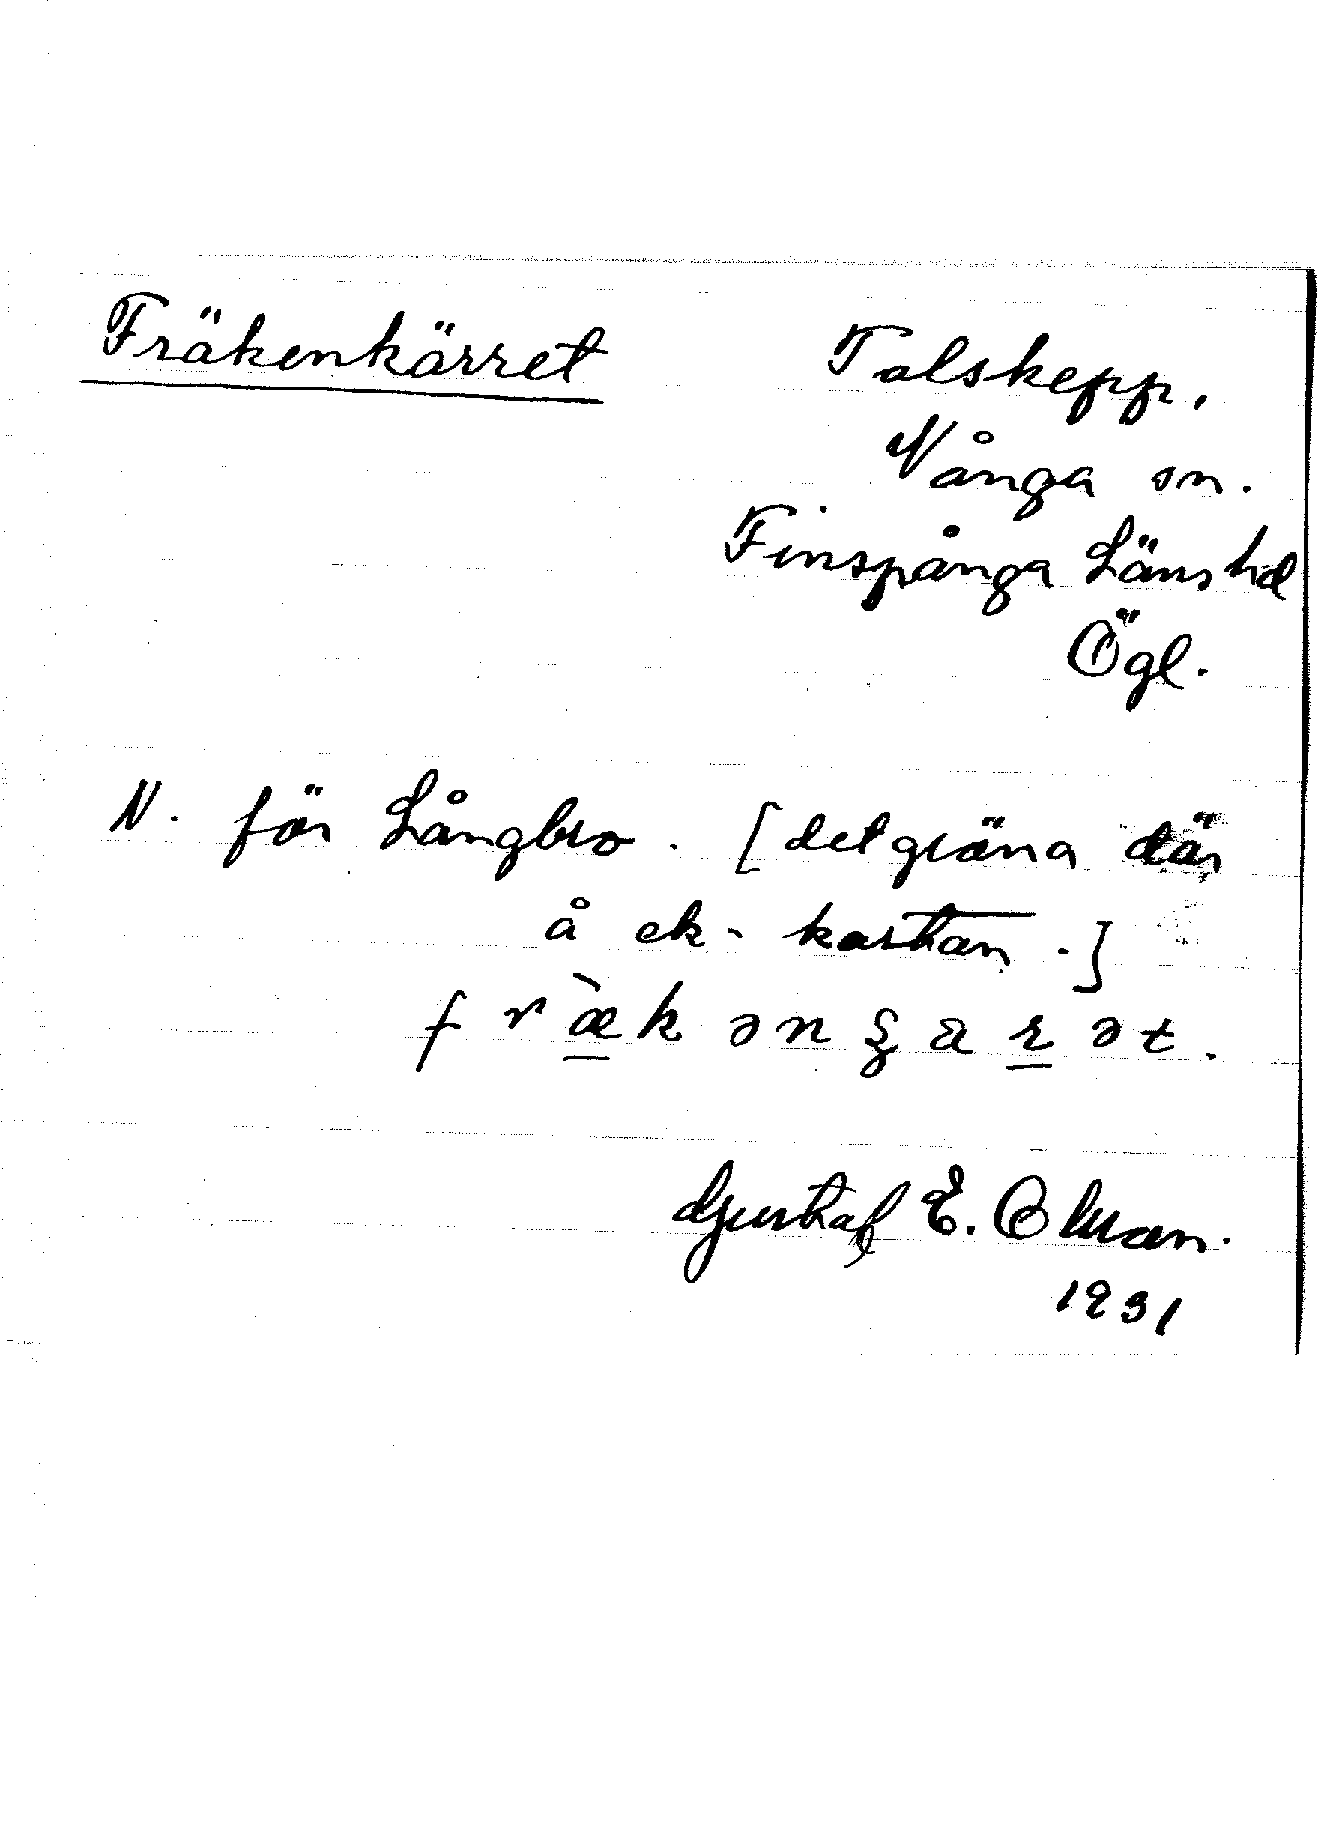 Fräkenkärret
Tolskepp.
Vånga sn.
Finspånga Läns hd
Ögl.
N. för Långbro. [det gröna där
å ek-kartan.]
Gustaf E. Olsson.
1931